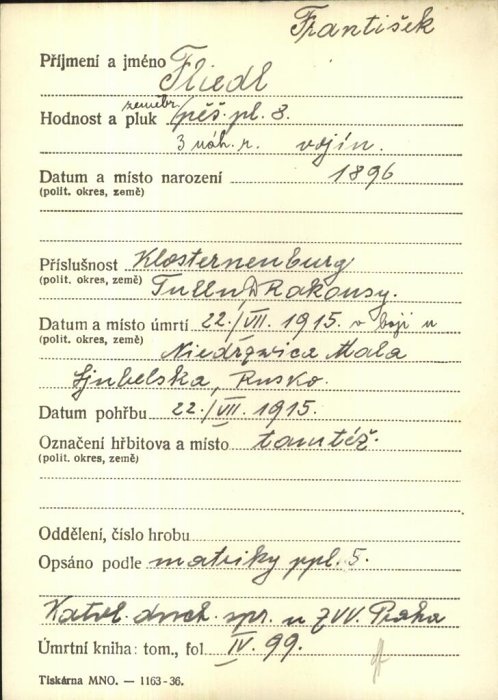 František
Příjmení a jméno Fliedl
zeměbr.
Hodnost a pluk pěš. pl. 8.
3 náh. r. vojín.
Datum a místo narození 1896
(polit. okres, země)
Příslušnost Klosternenburg
(polit. okres, země) Tulln D Rakousy.
Datum a místo úmrtí 22./VII. 1915. v boji u
(polit. okres, země)
Niedrzwica Mala
Ljubelska, Rusko.
Datum pohřbu 22./VII. 1915.
Označení hřbitova a místo tamtéž.
(polit. okres, země)
Oddělení, číslo hrobu
Opsáno podle matriky ppl. 5.
Katol. duch. spr. u ZVV. Praha
Úmrtní kniha: tom., fol IV. 99.
Tiskárna MNO. — 1163-36.